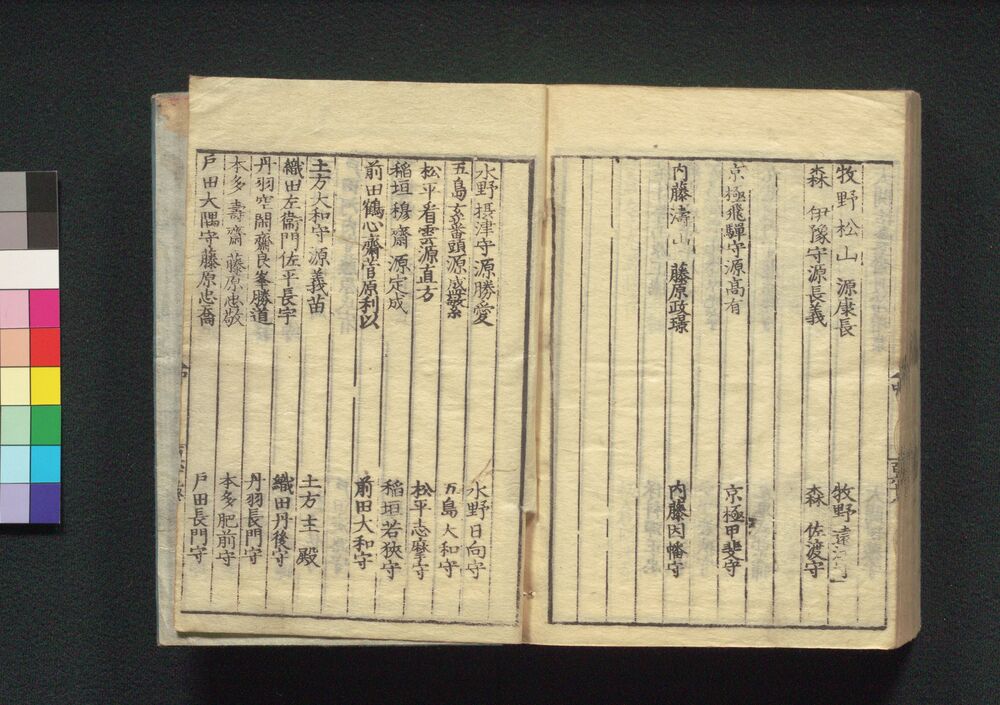 牧野松山 源康長 牧野遠江守
森 伊豫守源長義 森 佐渡守
京極飛騨守源髙有 京極甲斐守
内藤濤山 藤原政璟 内藤因幡守
水野摂津守源勝愛 水野日向守
五嶋左衛番頭源盛繁 五嶋大和守
松平看雲源直方 松平志摩守
稲垣穆齋 源定成 稲垣若狭守
前田鶴心齋菅原利以 前田大和守
土方大和守 源義苗 土方主殿
織田左衛門佐平長宇 織田丹後守
丹羽空閑齋良峯勝道 丹羽長門守
本多 壽齋 藤原忠敬 本多肥前守
戸田大隅守藤原忠喬 戸田長門守